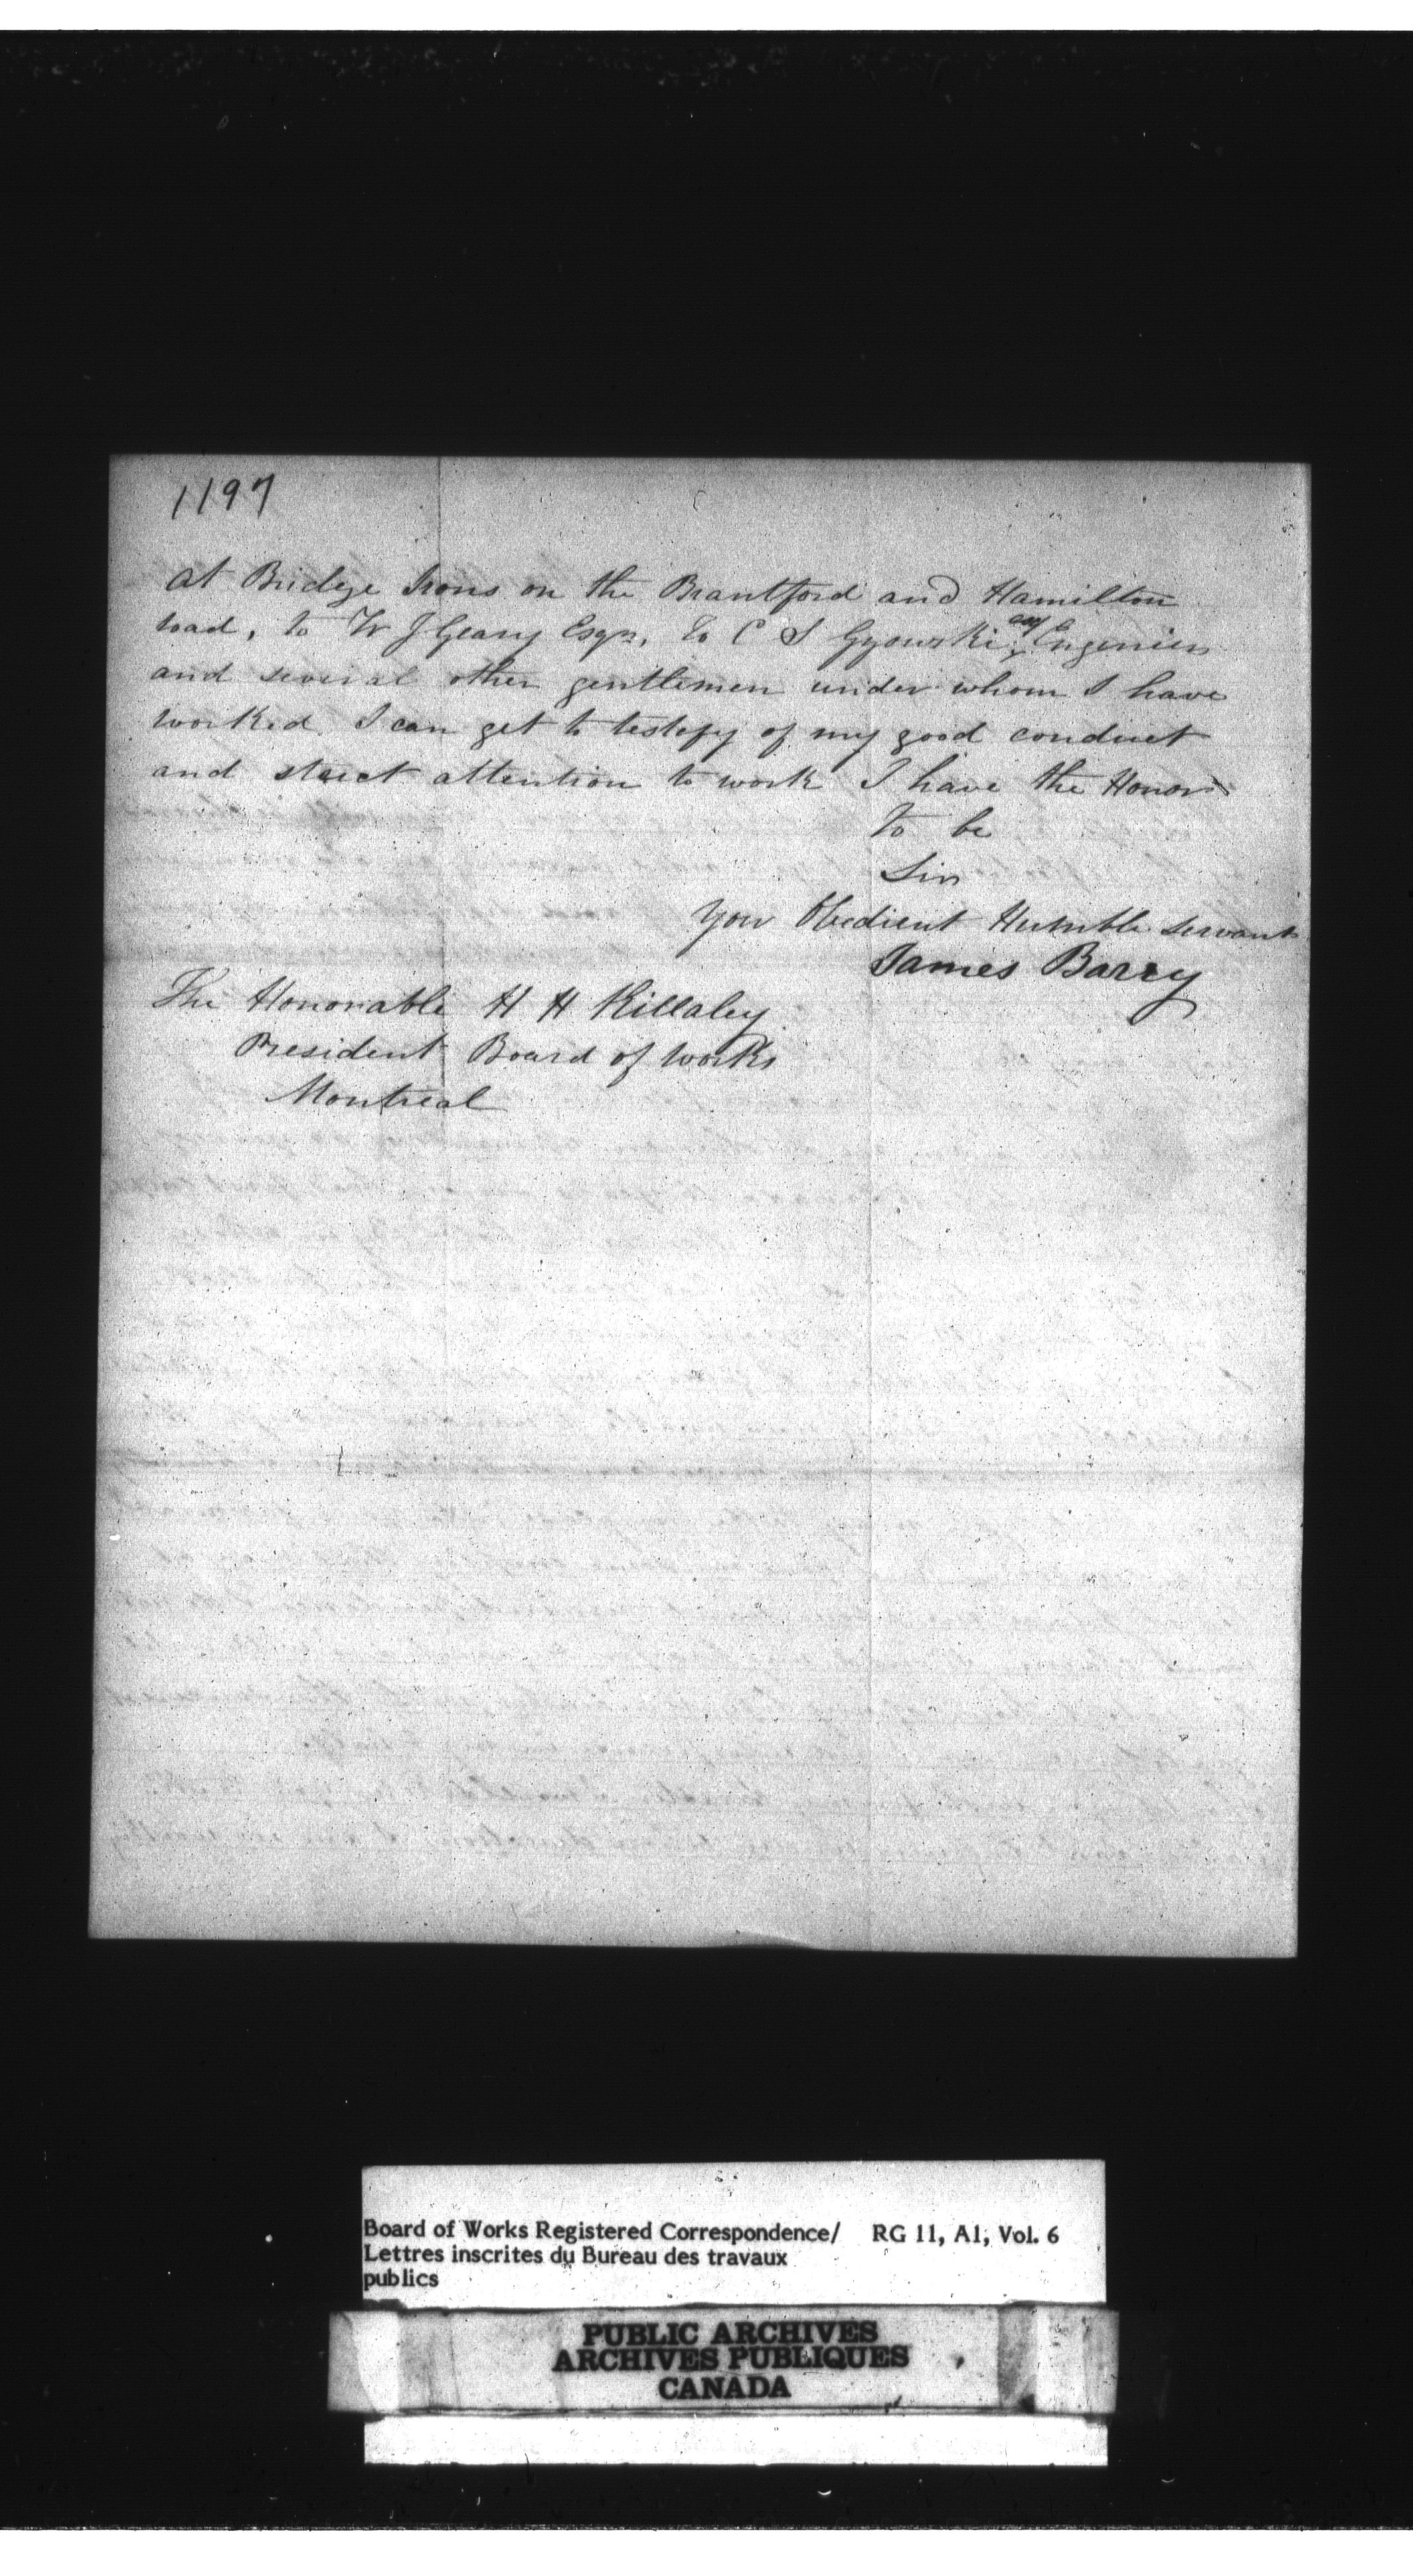 1197
at Bridge Irons on the Brantford and Hamilton
road, to W J Geary Esqr, to C S Gzowski, Engenier
and several other gentlemen under whom I have
worked. I can get to testefy of my good conduct
and strict attention to work I have the Honor
to be
Sir
Your Obedient Humble Servant
James Barry
The Honorable H H Killaley
President Board of Works
Montreal
Board of Works Registered Correspondence/ RG 11, A1, Vol. 6
Lettres inscrites du Bureau des travaux
publics
PUBLIC ARCHIVES
ARCHIVES PUBLIQUES
CANADA